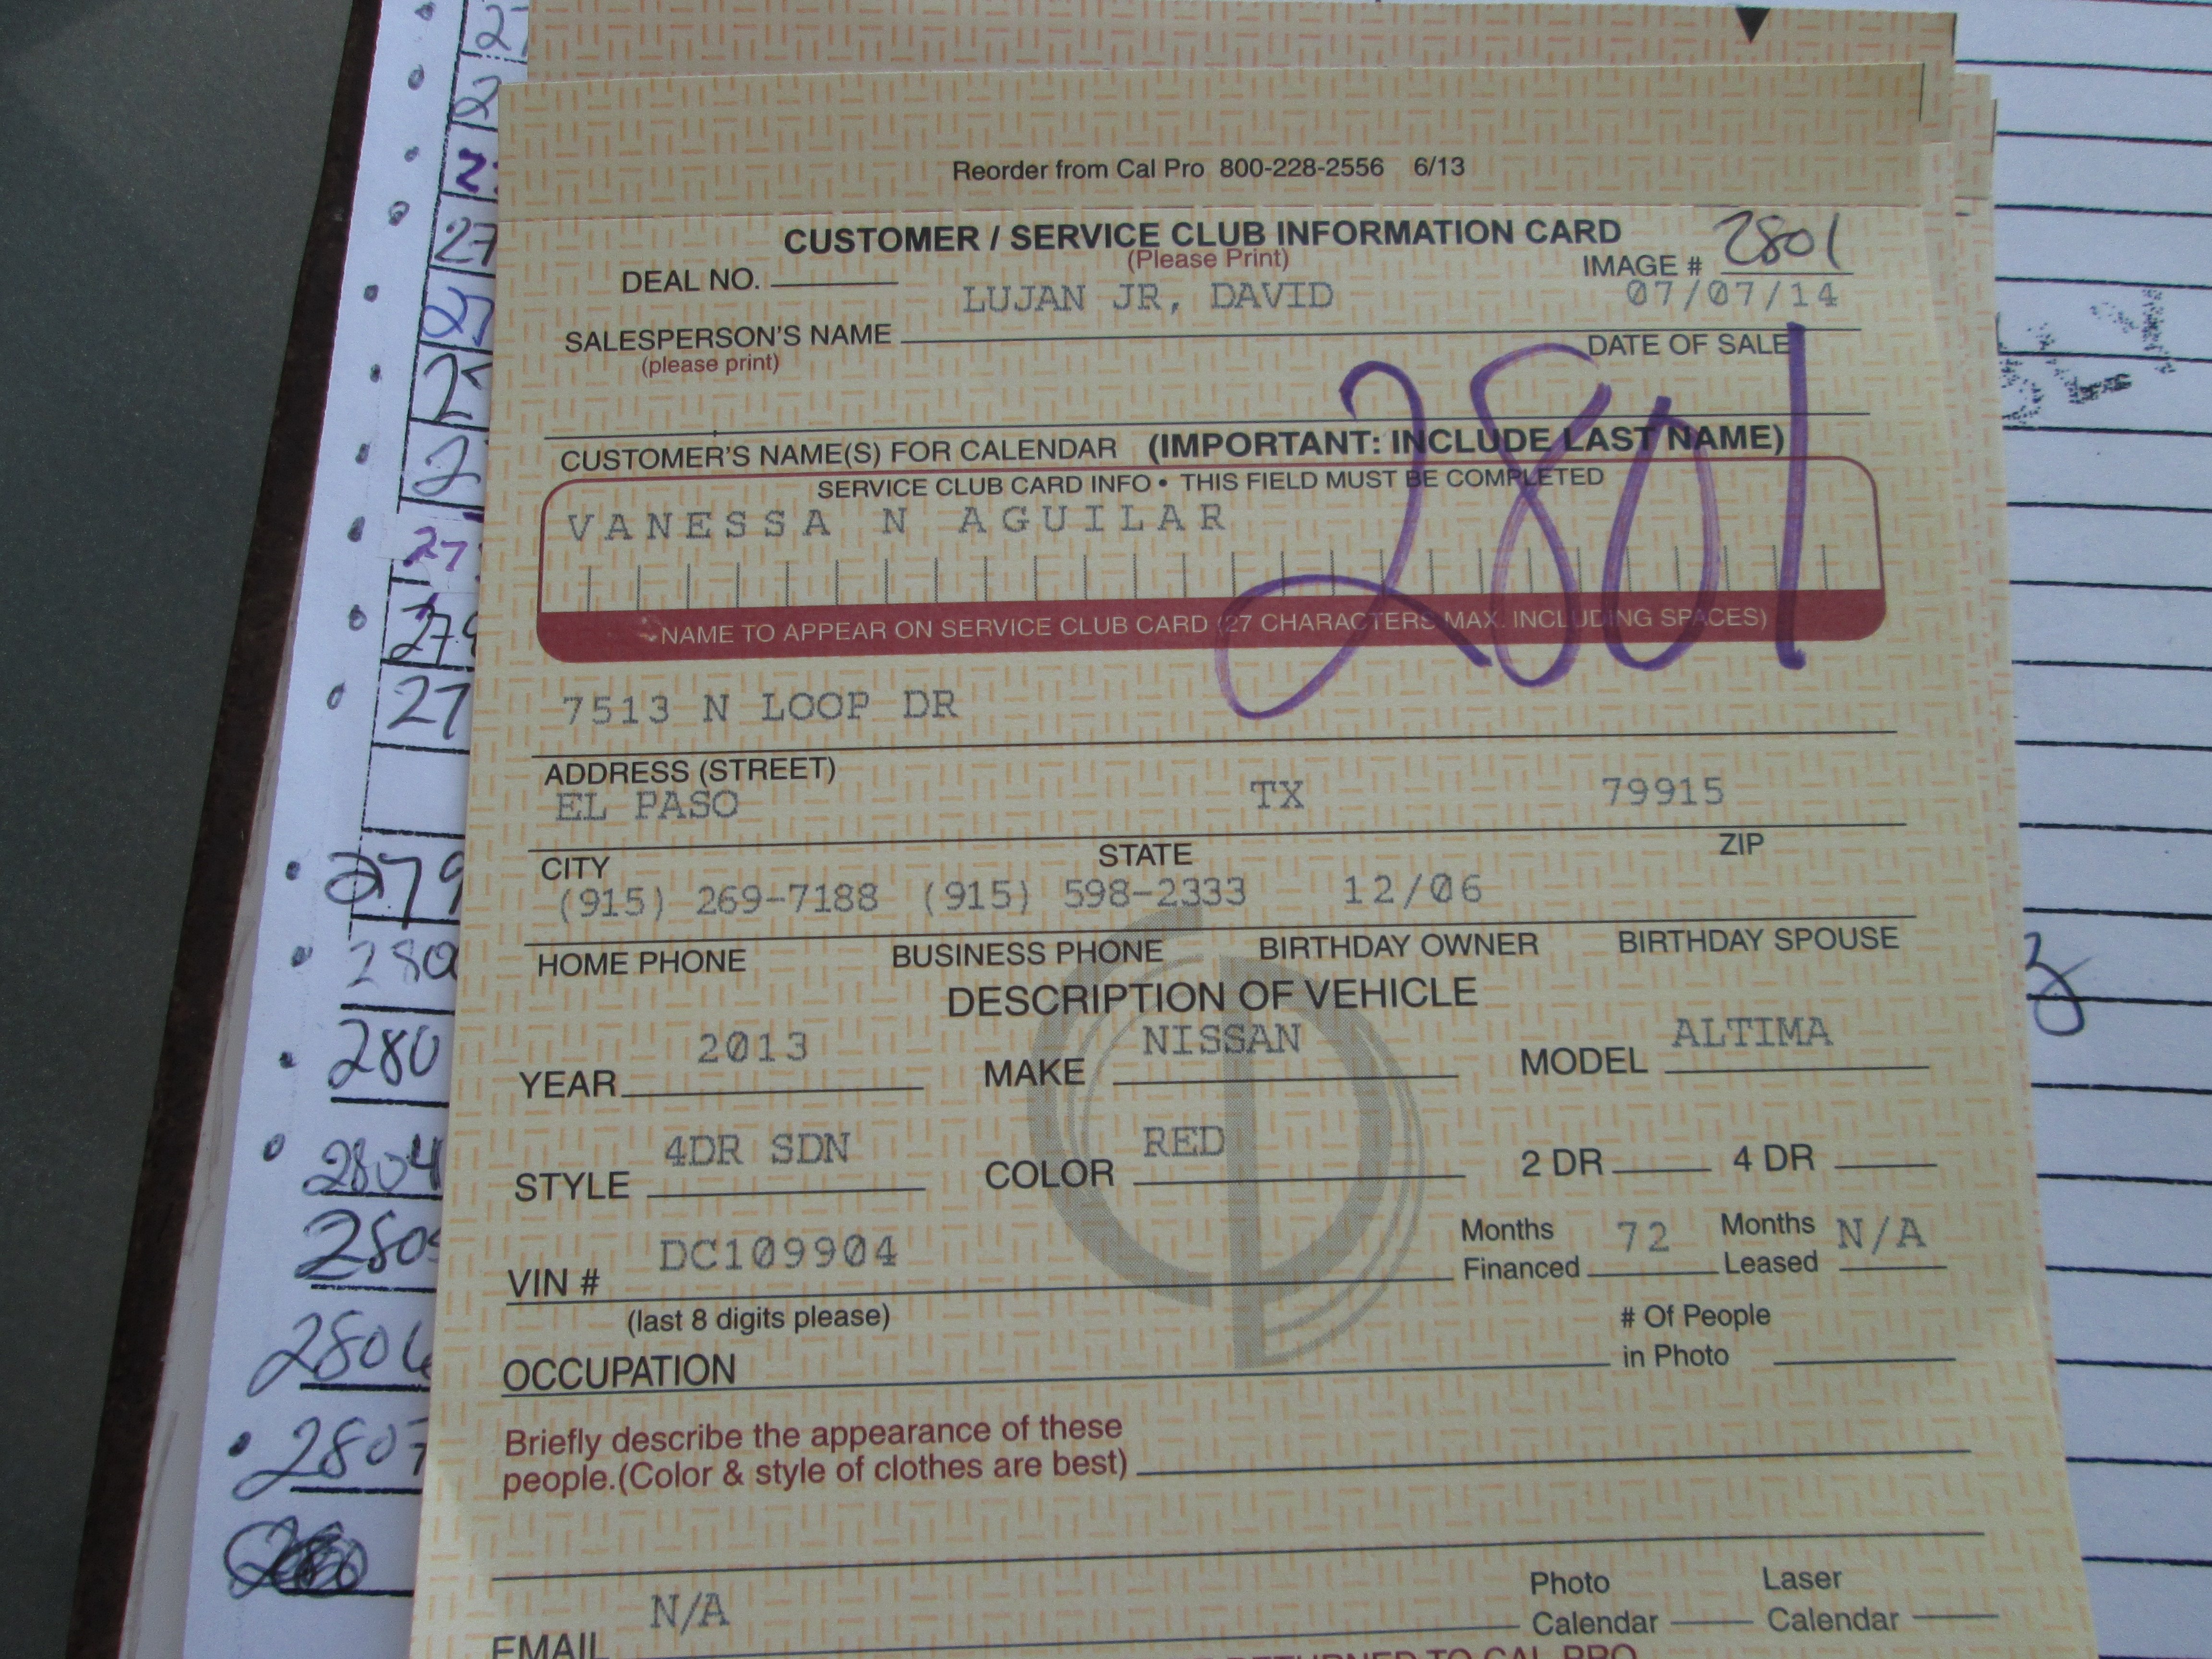 Reorder from Cal Pro 800-228-2556 6/13
CUSTOMER / SERVICE CLUB INFORMATION CARD
(Please Print)
IMAGE # 2801
DEAL NO.
LUJAN JR, DAVID 07/07/14
SALESPERSON'S NAME DATE OF SALE
(please print)
2801
CUSTOMER'S NAME(S) FOR CALENDAR (IMPORTANT: INCLUDE LAST NAME)
SERVICE CLUB CARD INFO • THIS FIELD MUST BE COMPLETED
VANESSA N AGUILAR
NAME TO APPEAR ON SERVICE CLUB CARD (27 CHARACTERS MAX. INCLUDING SPACES)
7513 N LOOP DR
ADDRESS (STREET)
EL PASO TX 79915
CITY STATE ZIP
(915) 269-7188 (915) 598-2333 12/06
HOME PHONE BUSINESS PHONE BIRTHDAY OWNER BIRTHDAY SPOUSE
DESCRIPTION OF VEHICLE
YEAR 2013 MAKE NISSAN MODEL ALTIMA
STYLE 4DR SDN COLOR RED 2 DR 4 DR
VIN # DC109904 Months Financed 72 Months Leased N/A
(last 8 digits please)
OCCUPATION # Of People in Photo
Briefly describe the appearance of these
people.(Color & style of clothes are best)
EMAIL N/A Photo Calendar Laser Calendar
RETURNED TO CAL PRO
279
280
280
2804
280
2806
2807